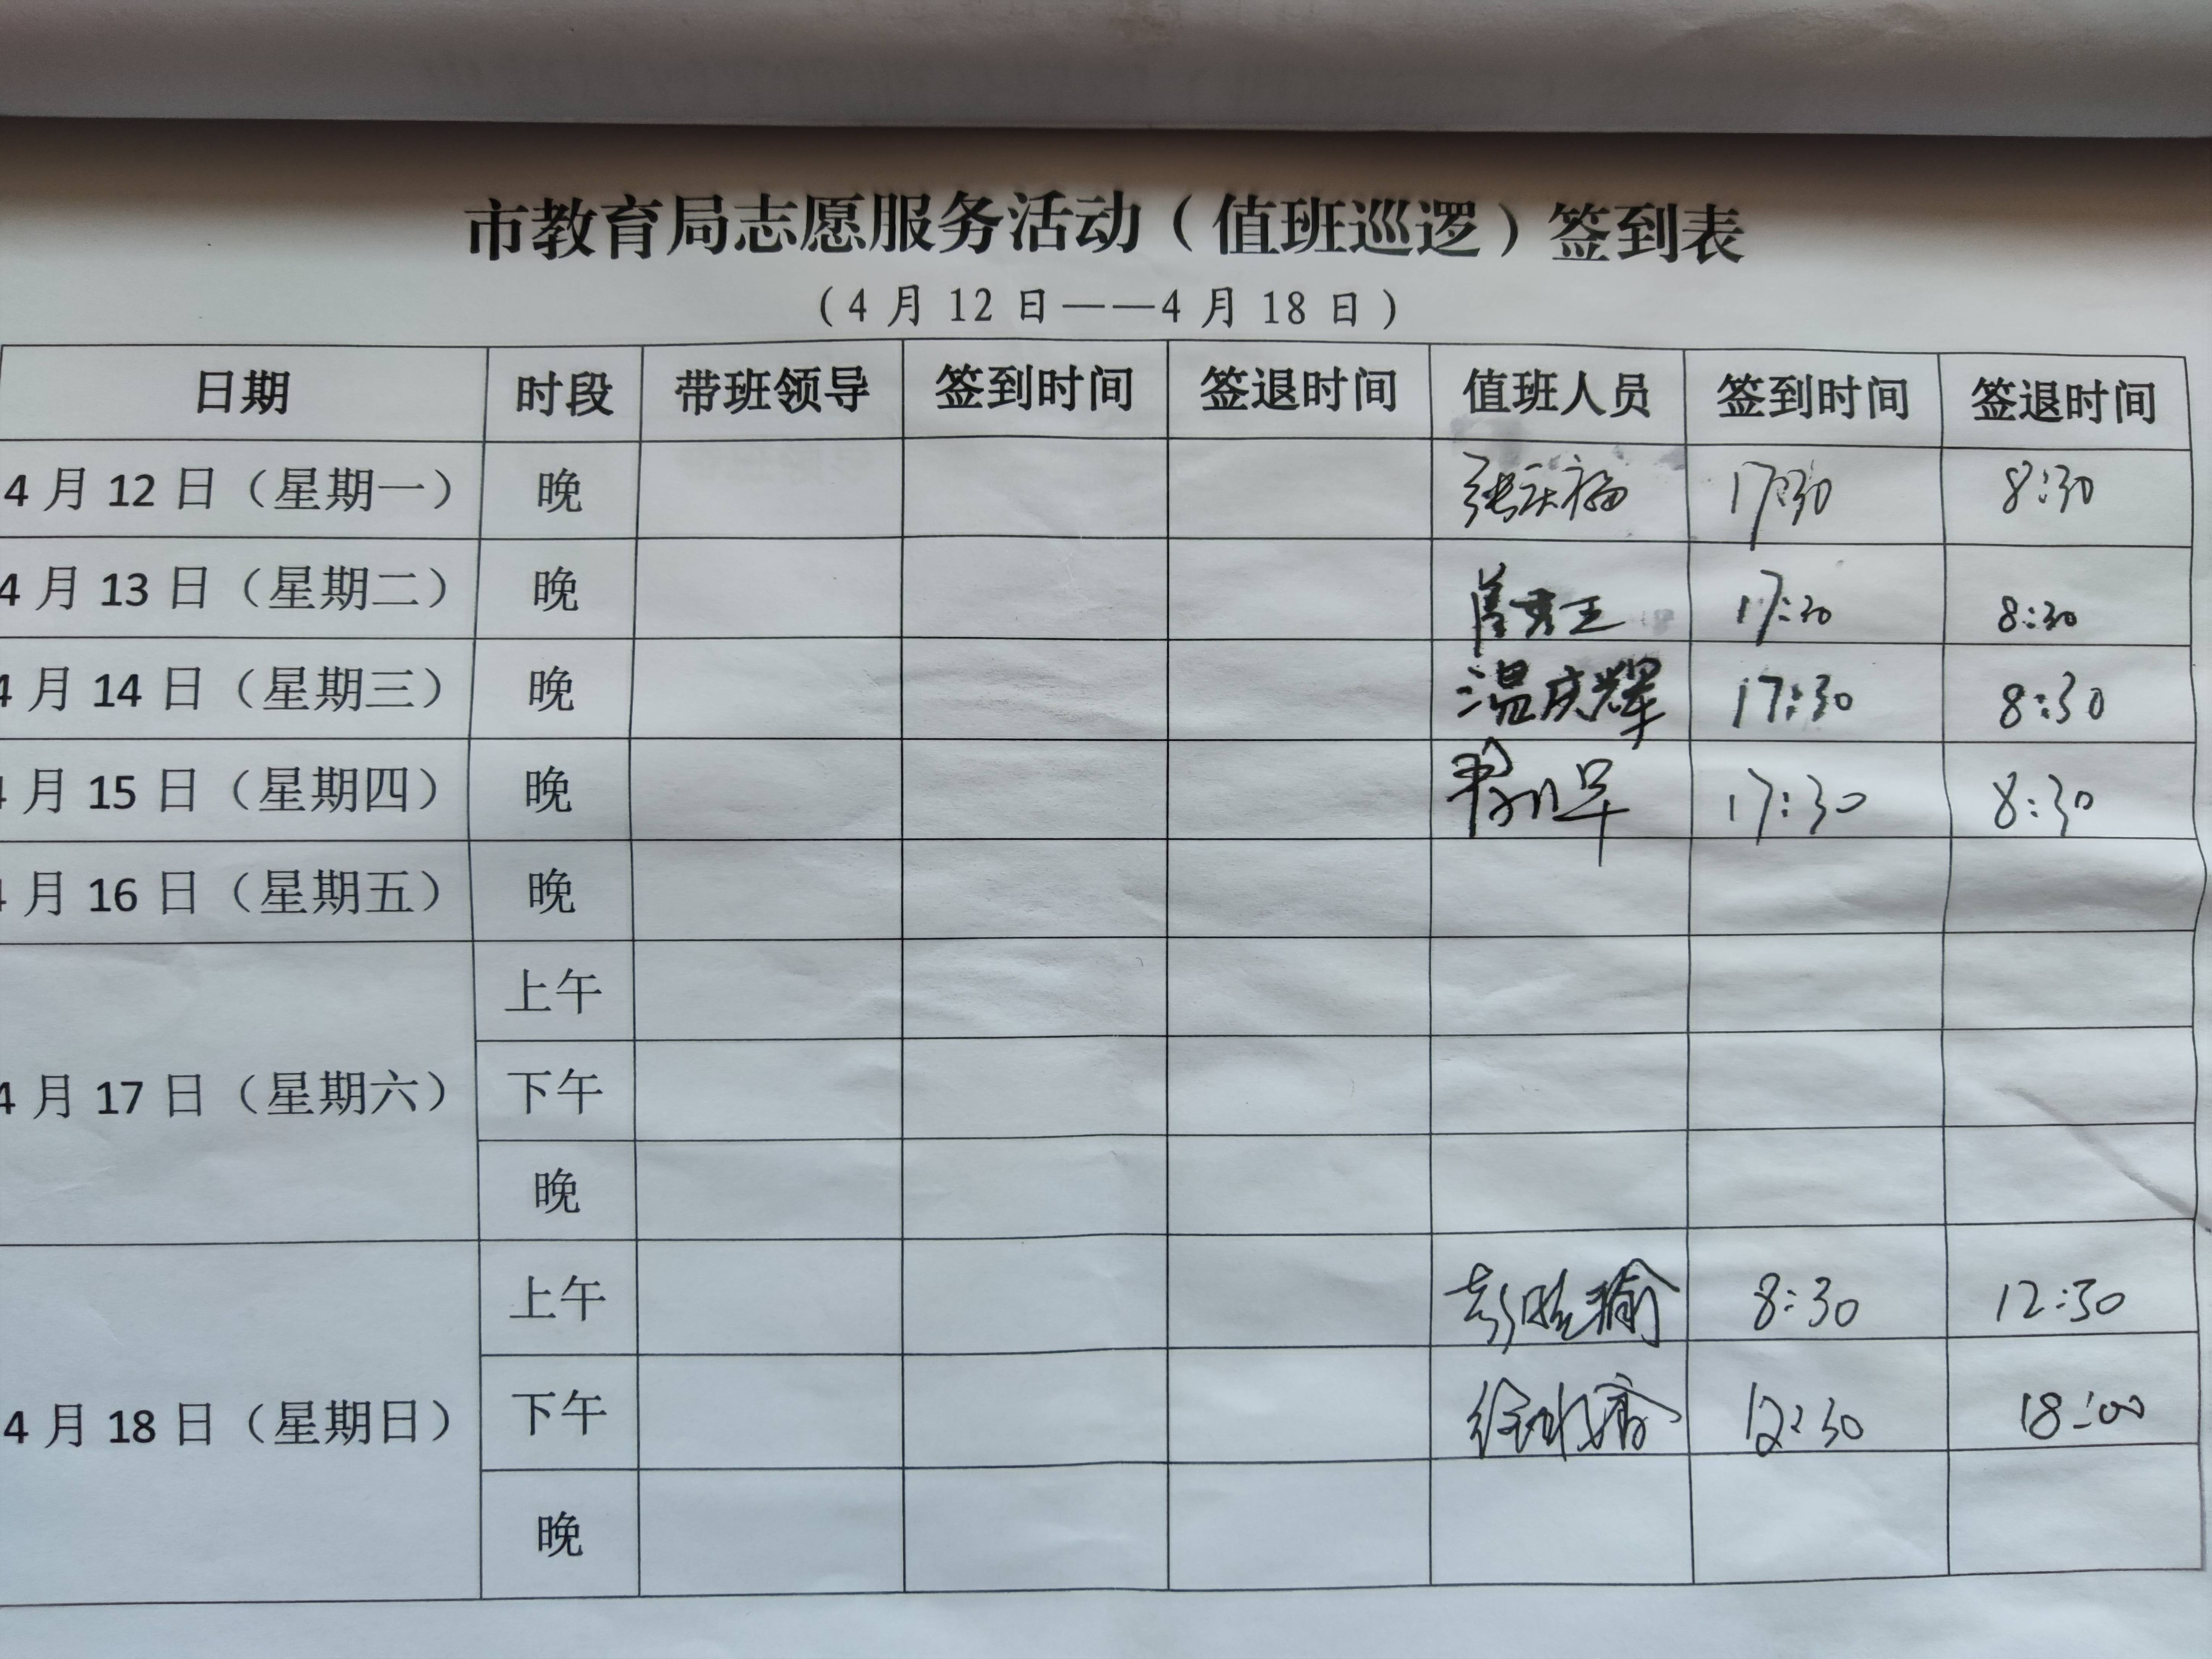 市教育局志愿服务活动（值班巡逻）签到表
（4 月 12 日——4 月 18 日）
日期 时段 带班领导 签到时间 签退时间 值班人员 签到时间 签退时间
4 月 12 日（星期一） 晚 张庆福 17:30 8:30
4 月 13 日（星期二） 晚 17:30 8:30
4 月 14 日（星期三） 晚 温庆辉 17:30 8:30
4 月 15 日（星期四） 晚 17:30 8:30
4 月 16 日（星期五） 晚
4 月 17 日（星期六） 上午
下午
晚
4 月 18 日（星期日） 上午 彭晓瑜 8:30 12:30
下午 12:30 18:00
晚